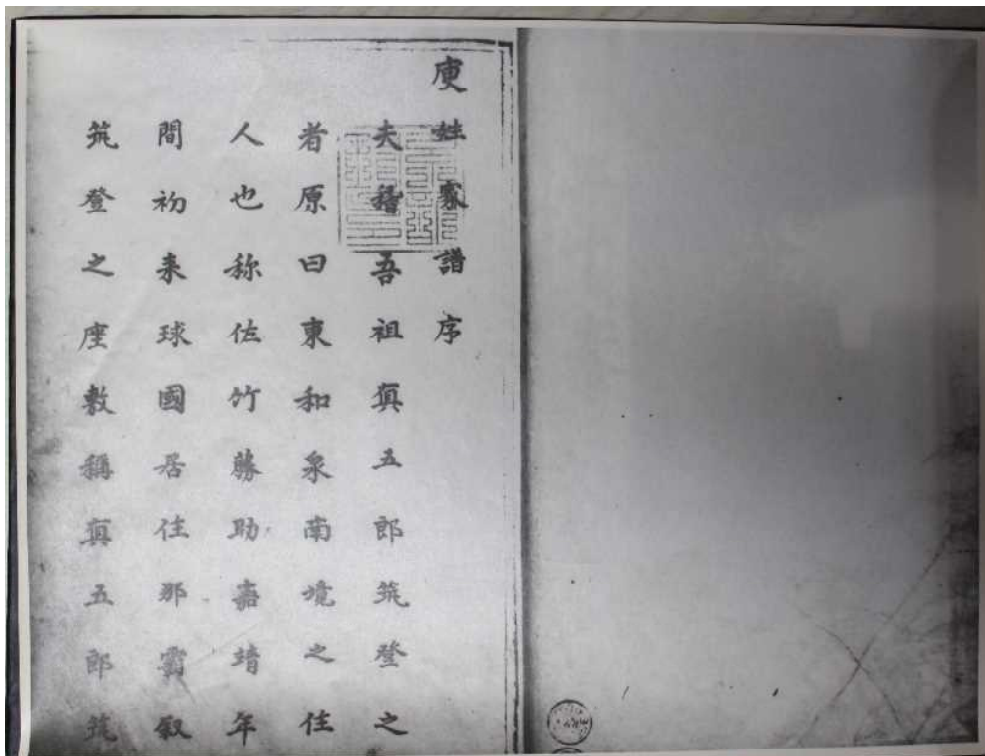 庾姓家譜序
夫稽吾祖真五郎筑登之
者原曰東和泉南境之住
人也称佐竹勝助嘉靖年
間初来球國居住那霸叙
筑登之座敷稱真五郎筑